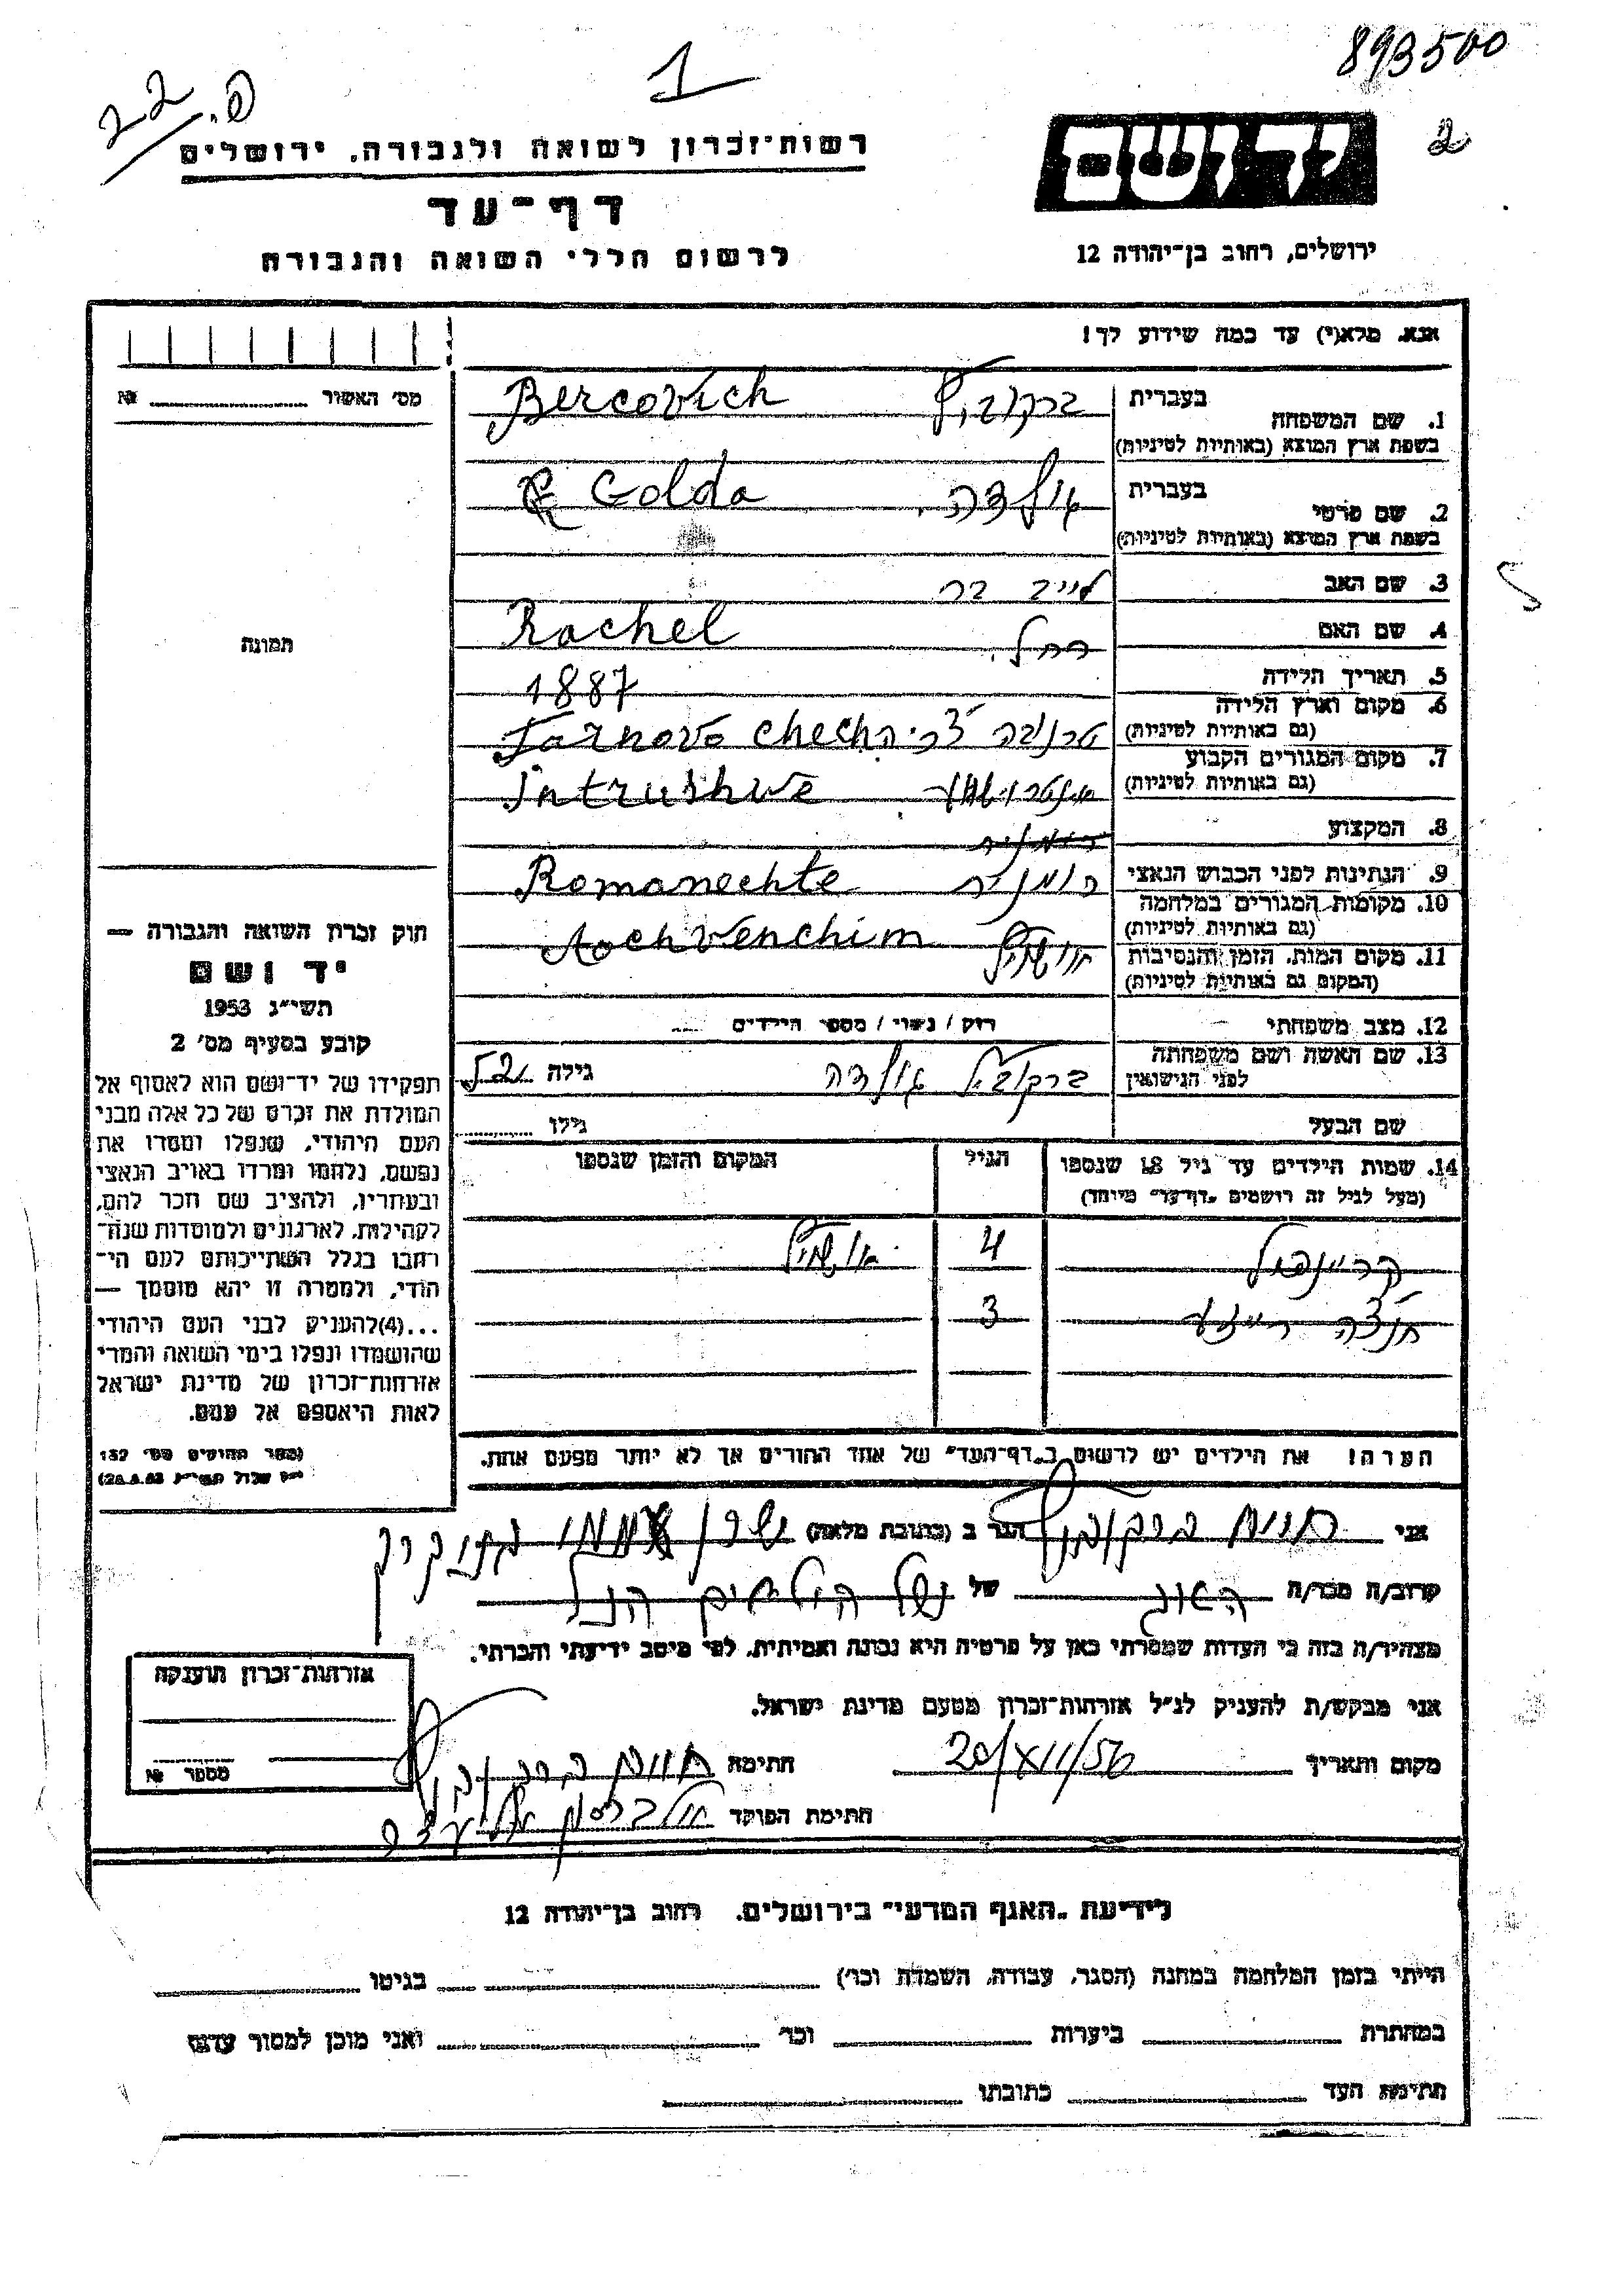 893500
1
פ. 22
2
יד ושם
רשות־זכרון לשואה ולגבורה, ירושלים
דף־עד
לרשום חללי השואה והגבורה
ירושלים, רחוב בן־יהודה 12
אנא, מלא(י) עד כמה שידוע לך!
מס׳ האשור №
1. שם המשפחה בעברית ברקוביץ Bercovich
בשפת ארץ המוצא (באותיות לטיניות)
2. שם פרטי בעברית גולדה Golda
בשפת ארץ המוצא (באותיות לטיניות)
3. שם האב לייב בר
4. שם האם רחל Rachel
5. תאריך הלידה 1887
6. מקום וארץ הלידה טרנובה Tarnovo chech
(גם באותיות לטיניות)
7. מקום המגורים הקבוע Intrushwe
(גם באותיות לטיניות)
8. המקצוע
9. הנתינות לפני הכבוש הנאצי רומנית Romanechte
10. מקומות המגורים במלחמה
(גם באותיות לטיניות)
11. מקום המות, הזמן והנסיבות Aochvenchim
(המקום גם באותיות לטיניות)
12. מצב משפחתי רוק / נשוי / מספר הילדים
13. שם האשה ושם משפחתה ברקוביץ גולדה גילה 52
לפני הנישואין
שם הבעל גילו
14. שמות הילדים עד גיל 18 שנספו הגיל המקום והזמן שנספו
(מעל לגיל זה רושמים „דף־עד״ מיוחד)
4
3
הערה! את הילדים יש לרשום ב„דף־העד״ של אחד ההורים אך לא יותר מפעם אחת.
תמונה
חוק זכרון השואה והגבורה —
יד ושם
תשי״ג 1953
קובע בסעיף מס׳ 2
תפקידו של יד־ושם הוא לאסוף אל
המולדת את זכרם של כל אלה מבני
העם היהודי, שנפלו ומסרו את
נפשם, נלחמו ומרדו באויב הנאצי
ובעוזריו, ולהציב שם וזכר להם,
לקהילות, לארגונים ולמוסדות שנח־
רבו בגלל השתייכותם לעם הי־
הודי, ולמטרה זו יהא מוסמך —
...(4)להעניק לבני העם היהודי
שהושמדו ונפלו בימי השואה והמרי
אזרחות־זכרון של מדינת ישראל
לאות היאספם אל עמם.
(ספר החוקים מס׳ 132
אני חיים ברקוביץ הגר ב (כתובת מלאה)
קרוב/ה מכר/ה של
מצהיר/ה בזה כי העדות שמסרתי כאן על פרטיה היא נכונה ואמיתית, לפי מיטב ידיעתי והכרתי.
אני מבקש/ת להעניק לנ״ל אזרחות־זכרון מטעם מדינת ישראל.
מקום ותאריך 20/XII/56 חתימה חיים ברקוביץ
חתימת הפוקד
אזרחות־זכרון הוענקה
מספר №
לידיעת „האגף המדעי״ בירושלים. רחוב בן־יהודה 12
הייתי בזמן המלחמה במחנה (הסגר, עבודה, השמדה וכו׳) בגיטו
במחתרת ביערות וכו׳ ואני מוכן למסור עדות
חתימת העד כתובתו